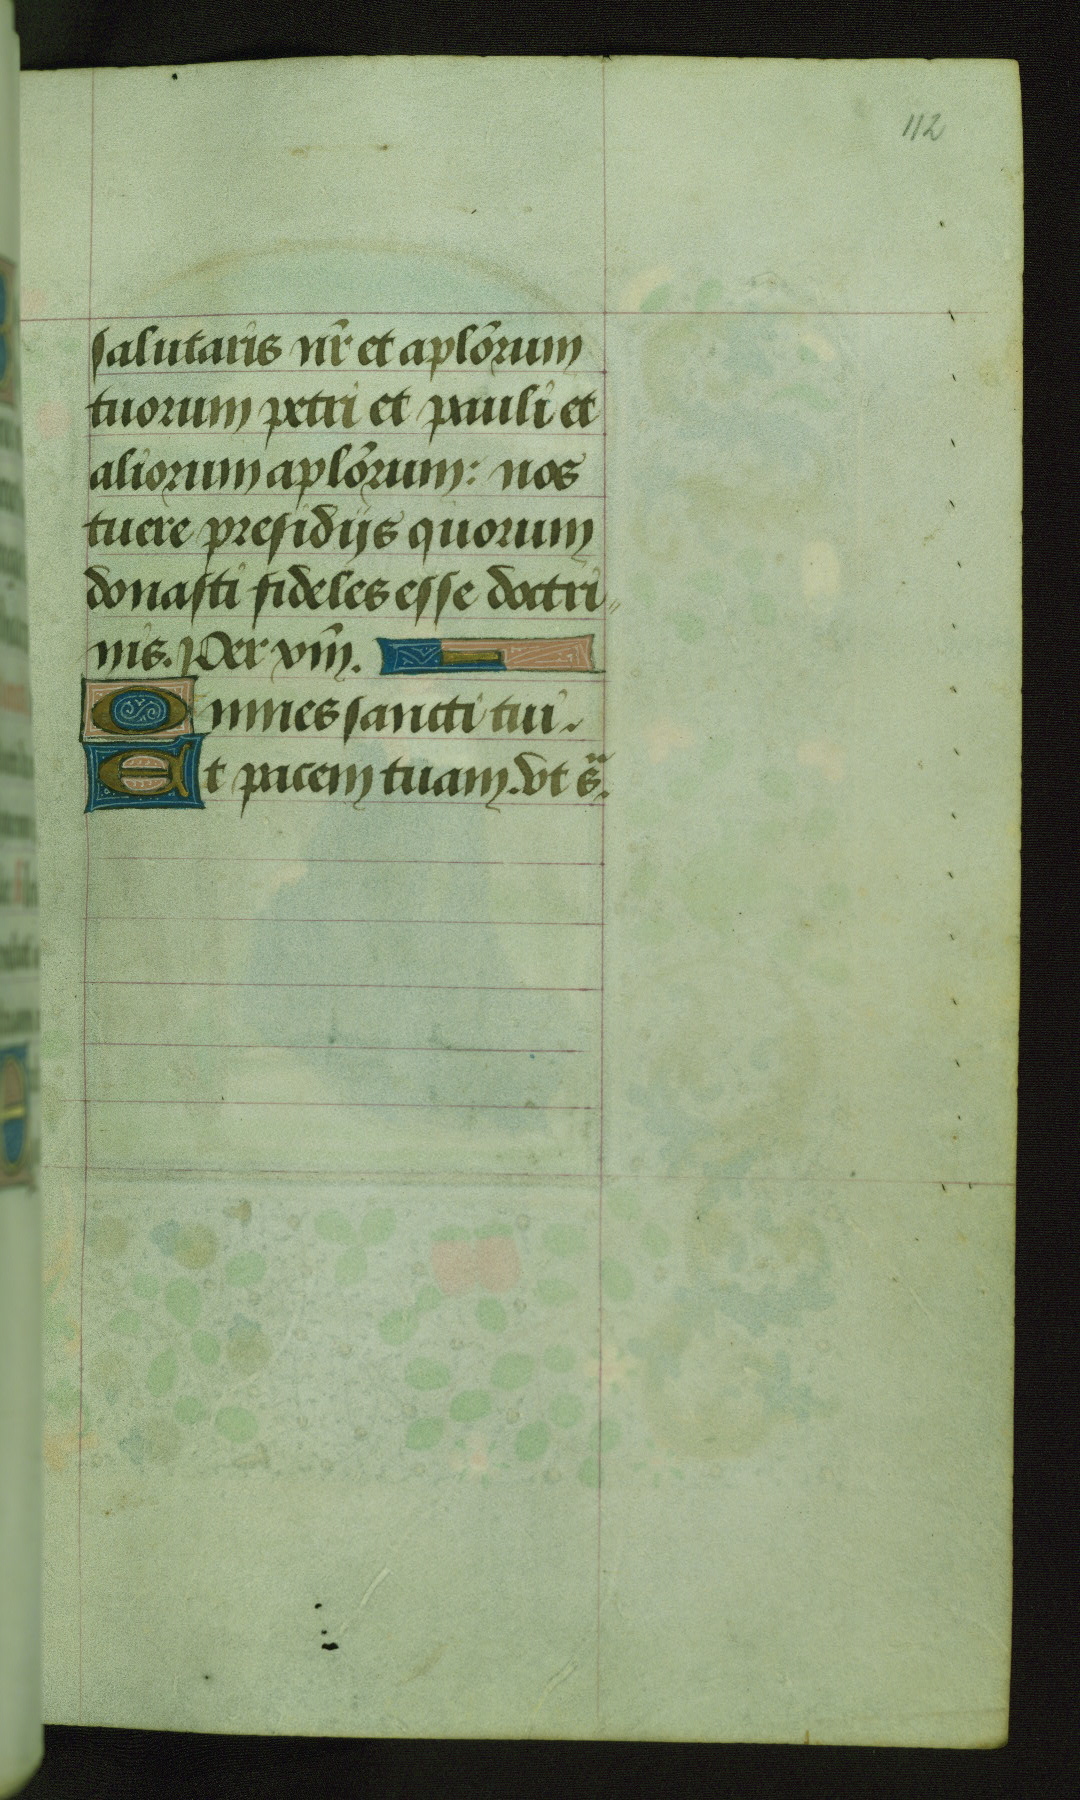 112
salutaris nr̄ et aplōrum
tuorum petri et pauli et
aliorum aplōrum: nos
tuere presidijs quorum
donasti fideles esse doctri〃
nis. Per vm̄.
Omnes sancti tui.
Et pacem tuam. vt s̄.